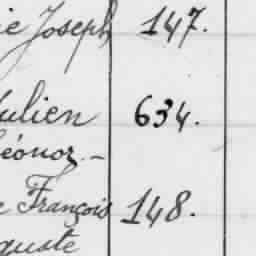 ie Joseph 147.
Julien 634.
Léonor. -
e François 148.
guste